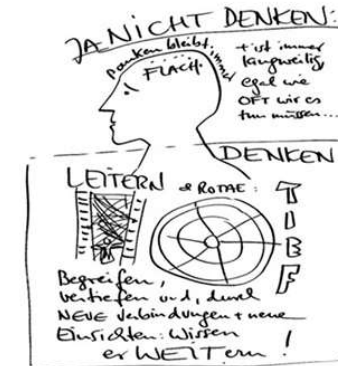 JA NICHT DENKEN:
Denken bleibt immer
FLACH.
+ ist immer
langweilig,
egal wie
OFT wir es
tun müssen...
DENKEN
LEITERN & ROTAE:
TIEF
Begreifen,
vertiefen und, durch
NEUE Verbindungen + neue
Einsichten: Wissen
erWEITern!